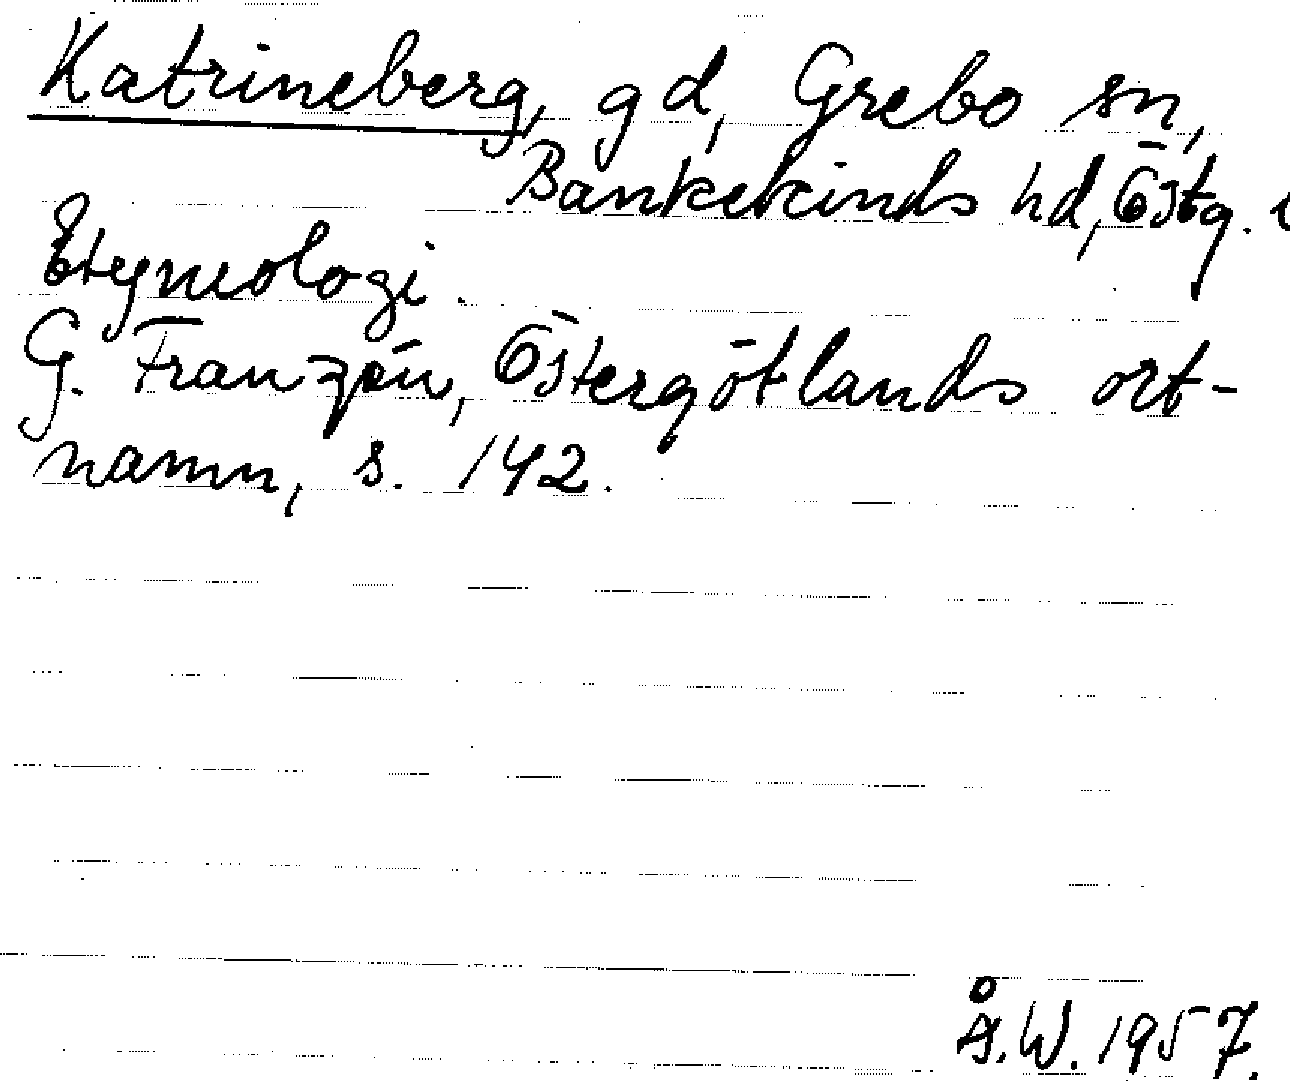 Katrineberg, gd, Grebo sn,
Bankekinds hd, Östg.
Etymologi.
G. Franzén, Östergötlands ort-
namn, s. 142.
Å.W. 1957.